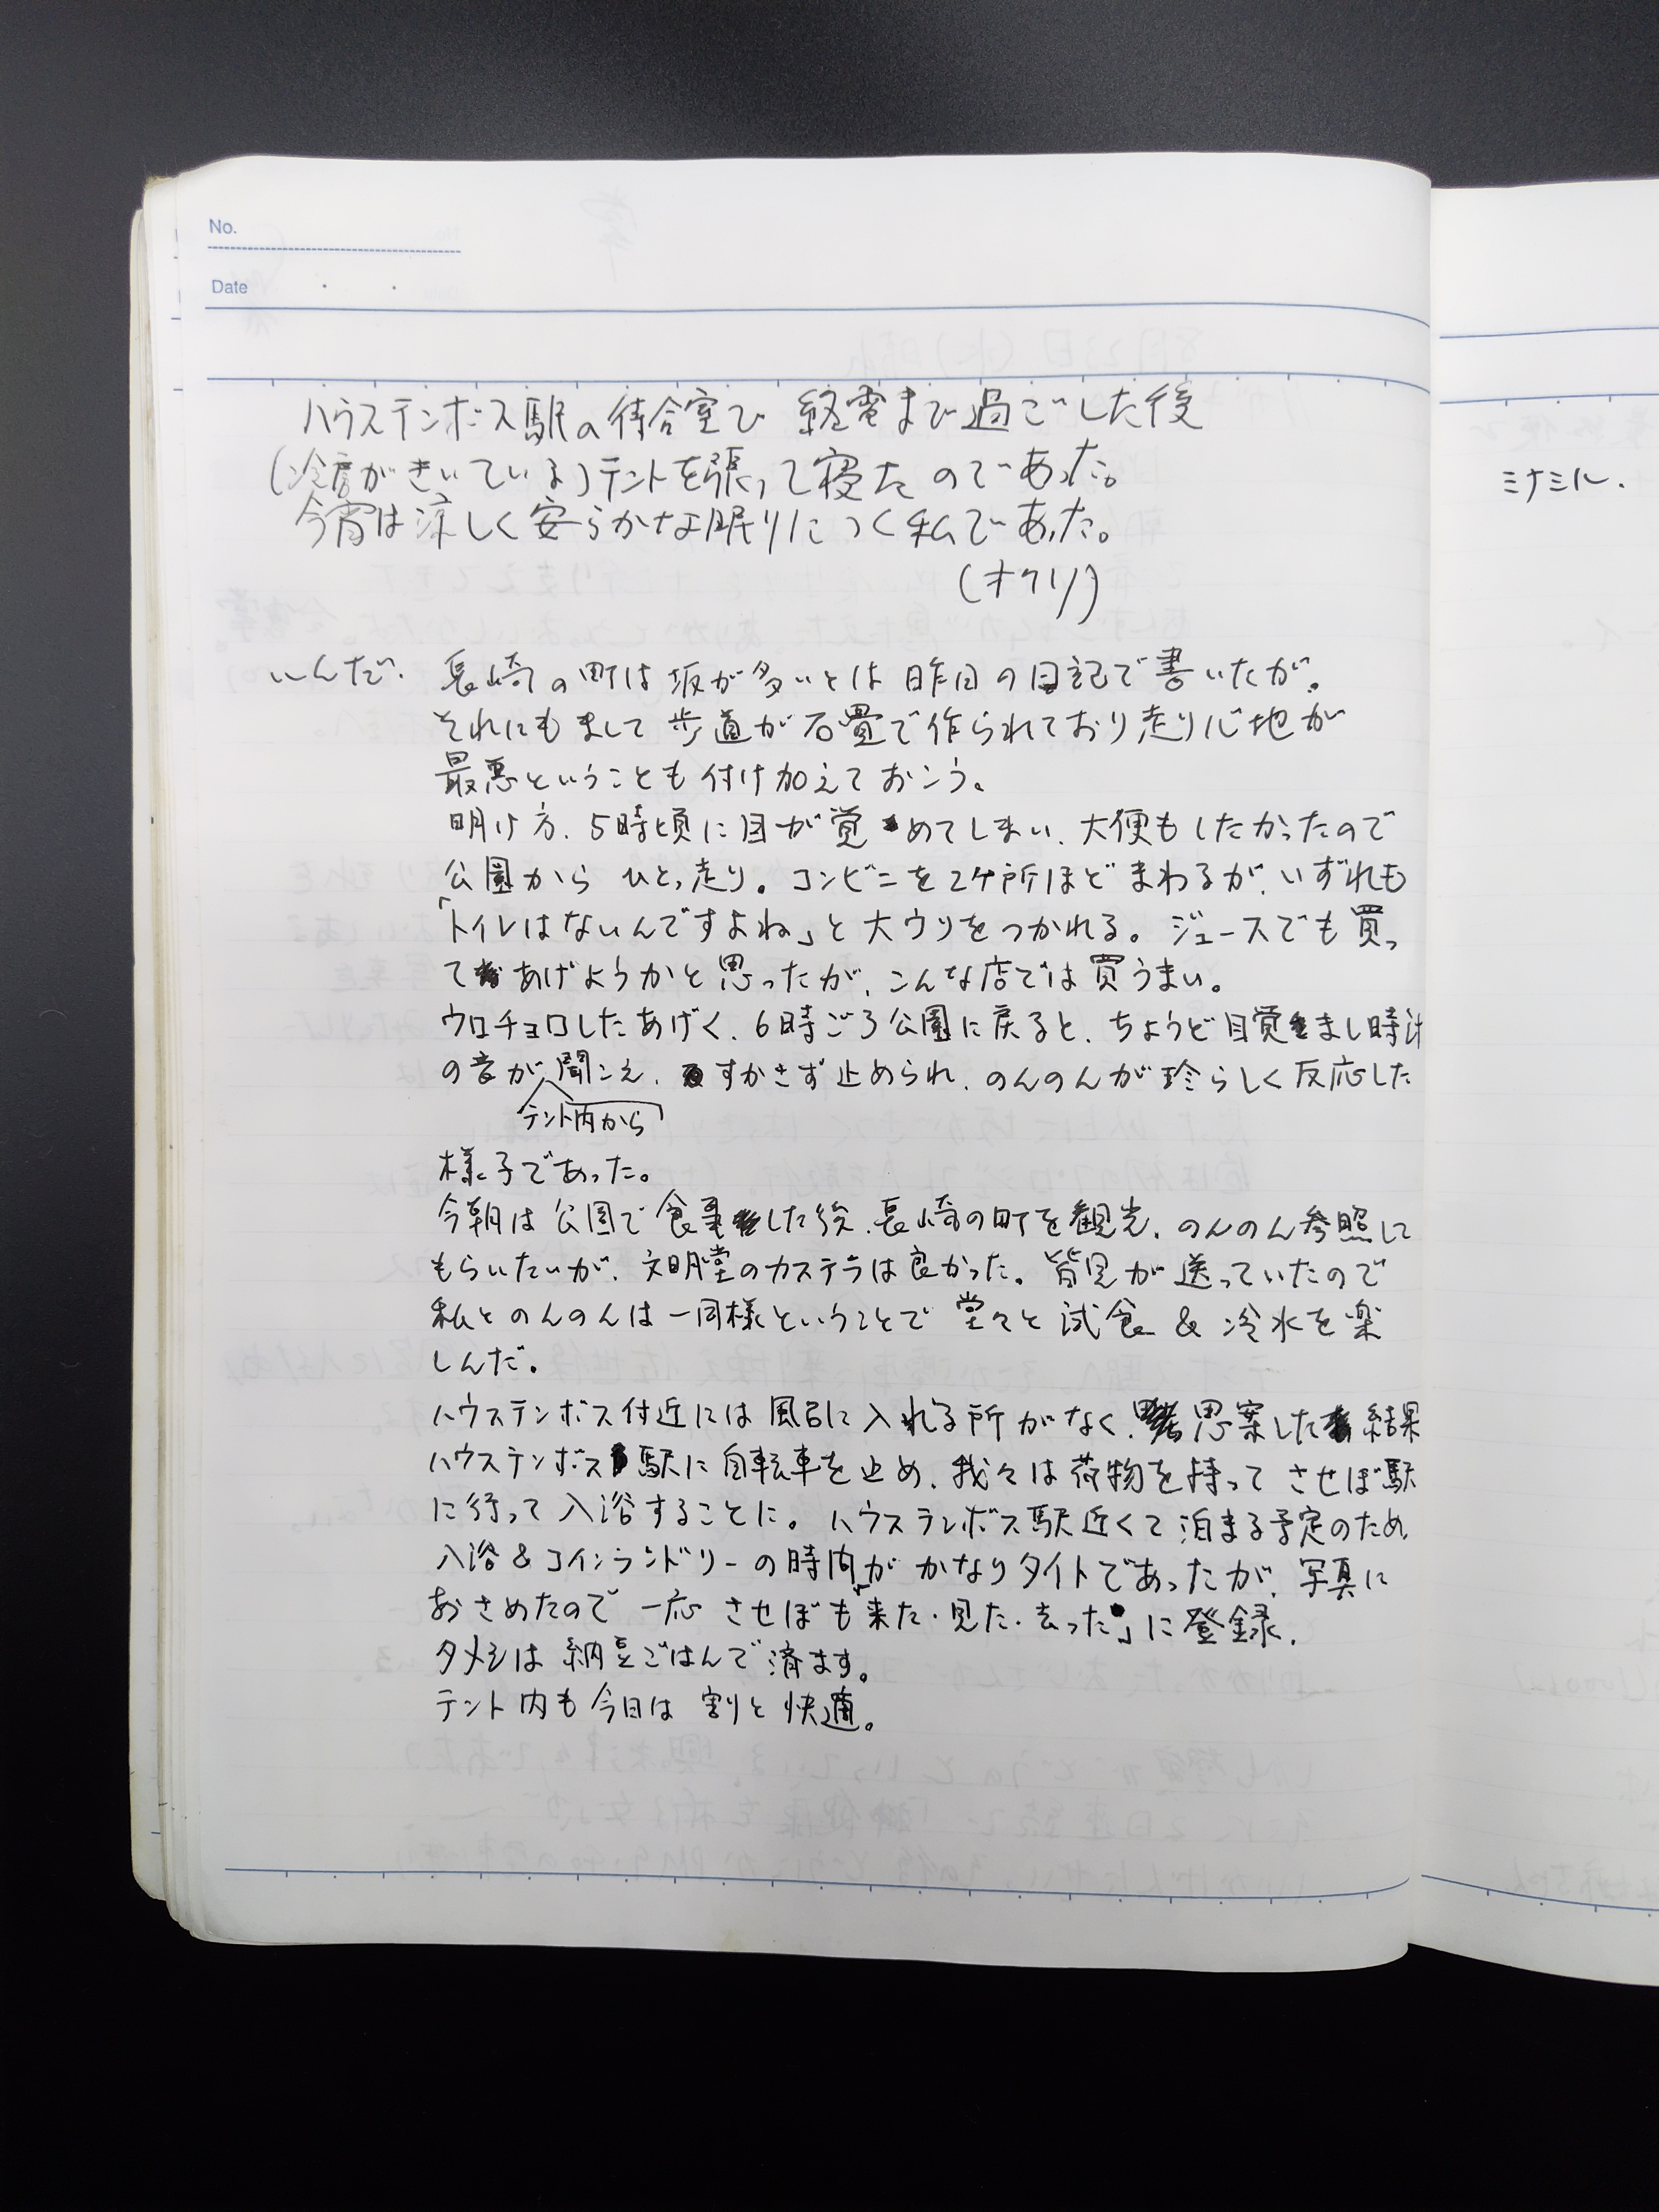 No.
Date
ハウステンボス駅の待合室で 終電まで過ごした後
(冷房がきいている)テントを張って寝たのであった。
今宵は涼しく安らかな眠りにつく私であった。
(オクリ)
いんだ. 長崎の町は坂が多いとは昨日の日記で書いたが、
それにもまして歩道が石畳で作られており走り心地が
最悪ということも付け加えておこう。
明け方、5時頃に目が覚めてしまい、大便もしたかったので
公園からひとっ走り。コンビニを2ケ所ほどまわるが、いずれも
「トイレはないんですよね」と大ウソをつかれる。ジュースでも買っ
てあげようかと思ったが、こんな店では買うまい。
ウロチョロしたあげく、6時ごろ公園に戻ると、ちょうど目覚まし時計
の音が聞こえ、すかさず止められ、のんのんが珍らしく反応した
テント内から
様子であった。
今朝は公園で食事した後、長崎の町を観光、のんのん参照して
もらいたいが、文明堂のカステラは良かった。皆見が送っていたので
私とのんのんは一同様ということで堂々と試食 & 冷水を楽
しんだ。
ハウステンボス付近には風呂に入れる所がなく、思案した結果
ハウステンボス駅に自転車を止め、我々は荷物を持ってさせぼ駅
に行って入浴することに。ハウステンボス駅近くて泊まる予定のため
入浴&コインランドリーの時間がかなりタイトであったが、写真に
おさめたので一応させぼも来た・見た・去った」に登録、
夕メシは納豆ごはんで済ます。
テント内も今日は割と快適。
ミナミル.